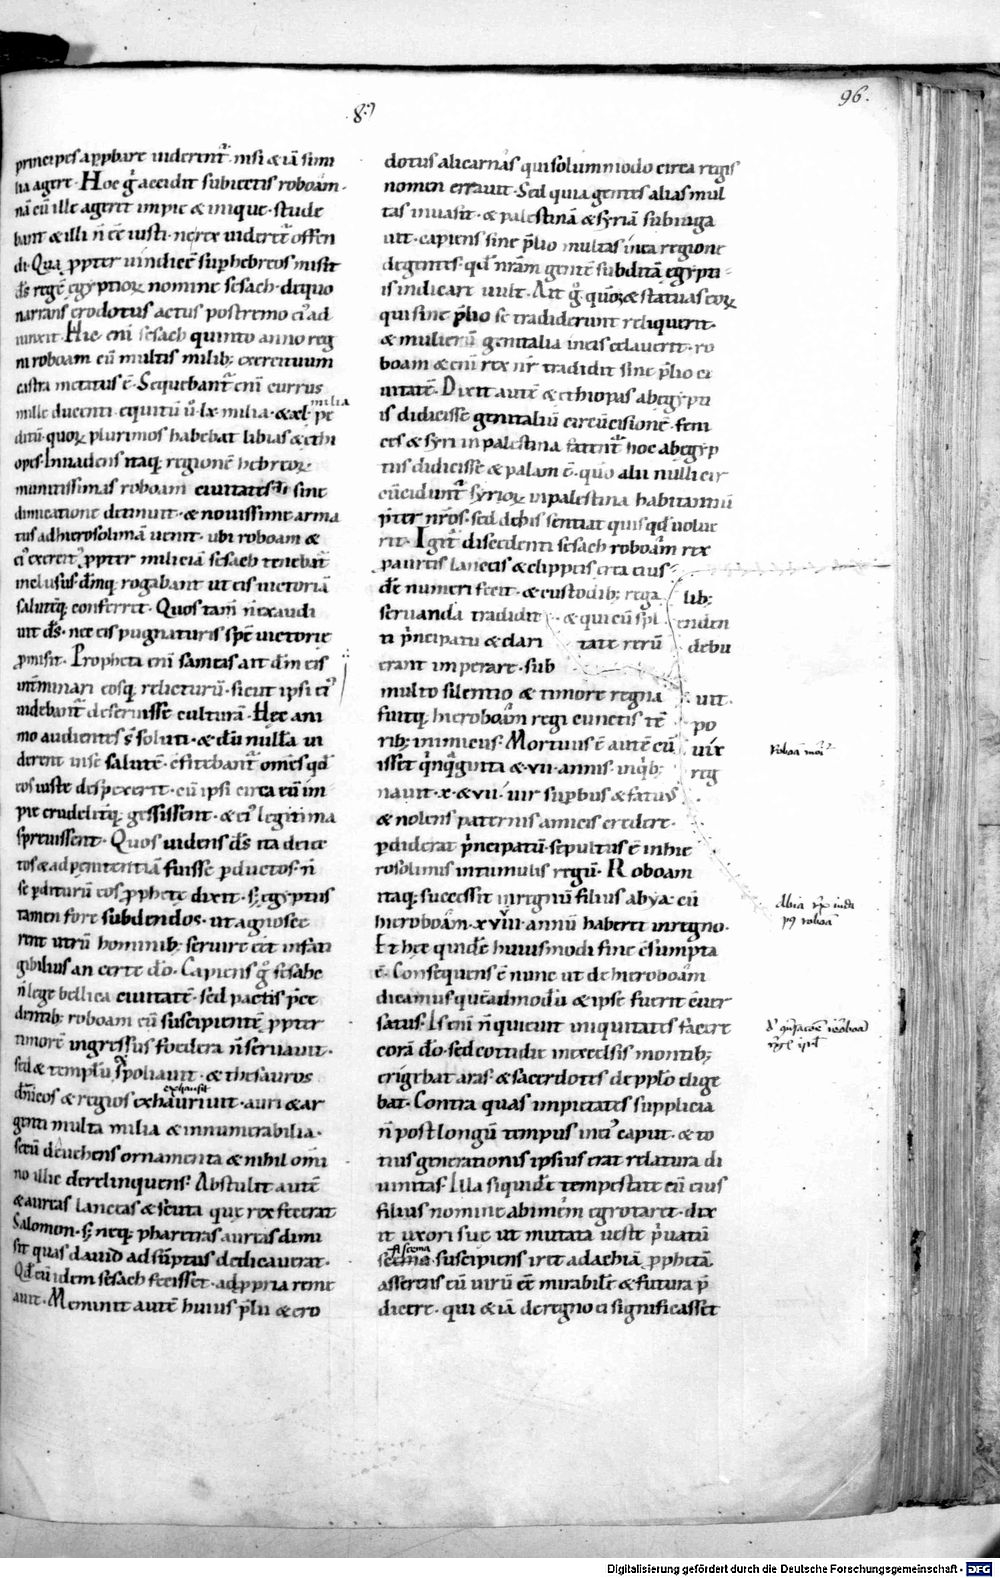 96.
8.
principes app̱bare uiderent᷑. nisi & iā simi
lia agere. Hoc ḡ accidit subiectis roboam.
nā cū ille ageret impie & inique. stude
bant & illi ñ eē iusti. ne rex uideret᷑ offen
di. Qua ꝓpter uindicē suꝑ hebreos misit
d̄s regē egyptioꝝ nomine sesach. de quo
narrans erodotus actus postremo ei ad
iunxit. Hic eni sesach quinto anno reg
ni roboam cū multis milib; exercituum
castra metatus ē. Sequebant᷑ eni currus
mille ducenti. equitū ū lx. milia. & xl milia pe
ditū. quoꝝ plurimos habebat libias & ethi
opes. Inuadens itaq; regionē hebreoꝝ
munitissimas roboam ciuitates sine
dimicatione detinuit. & nouissime arma
tus ad hierosolimā uenit. ubi roboam &
ei exercit ꝓpter miliciā sesach tenebat᷑
inclusus. dn̄mq; rogabant ut eis uictoriā
salutēq; conferret. Quos tam̄ ñ exaudi
uit d̄s. nec eis pugnaturis spē uictorie
ꝓmisit. Propheta eni samias ait dn̄m eis
intminari eosq; relicturū. sicut ipsi ei
uidebant᷑ deseruisse culturā. Hec ani
mo audientes s̄ soluti. & dū nullā ui
derent inse salutē. c̄fitebant᷑ om̄s qd̄
eos iuste despexerit. cū ipsi circa eū im
pie crudelitq; gessissent. & ei legitima
spreuissent. Quos uidens d̄s ita deiec
tos & ad penitentiā fuisse ꝑductos. ñ
se ꝑditurū eos ꝓphetę dixit. s; egyptus
tamen fore subdendos. ut agnosce
rent utrū hominib; seruire eēt infati
gibilius an certe dō. Capiens ḡ sesahc
ñ lege bellica ciuitatē. sed pactis p̄ce
dentib; roboam eū suscipientē ꝓpter
timorē ingressus foedera ñ seruauit.
sed & templū spoliauit. & thesauros
dn̄icos & regios exhauriuit. exhausit auri & ar
genti multa milia & innumerabilia.
secū deuehens ornamenta & nihil omi
no illic derelinquens. Abstulit autē
& aureas lanceas & scuta quę rex fecerat
Salomon. s; neq; pharetras aureas dimi
sit quas dauid ad sūptas dedicauerat.
Qd̄ cū idem sesach fecisset. ad ꝓpria reme
auit. Meminit autē huius p̄lii & ero
dotus alicarnas qui solummodo circa regis
nomen errauit. Sed quia gentes alias mul
tas inuasit. & palestinā & syriā subiuga
uit. capiens sine p̄lio multas in ea regione
degentes. qd̄ nr̄am gentē subditā egypti
is indicare uult. Ait ḡ. quōꝝ & statuas eoꝝ
qui sine p̄lio se tradiderunt reliquerit.
& mulierū genitalia in eis exclauerit. ro
boam & eni rex nr̄ tradidit sine p̄lio ci
uitatē. Dixit autē & ethiopas ab egypti
is didicisse genitaliū circūcisionē. feni
ces & syri in palestina fatent᷑ hoc ab egyp
tiis didicisse & palam ē. quo alii nulli cir
cūcidunt᷑ syrioꝝ in palestina habitantiū
p̄ter nr̄os. sed de his sentiat quis qd̄ uolue
rit. Igit᷑ discedenti sesach roboam rex
ꝓ aureis lanceis & clippeis erea eius
dē numeri fecit. & custodib; rega lib;
seruanda tradidit & qui cū spl enden
ti p̄ncipatu & clari tate rerū debu
erant imperare. sub
multo silentio & timore regna uit.
fuitq; hieroboam regi cunctis tē po
rib; inimicus. Mortuus ē autē cū uix
isset q̄nq̄ginta & vii. annis. in q̄b; reg
nauit. x. & vii. uir supbus & fatuus
& nolens paternis amicis credere.
ꝑdiderat p̄ncipatū. sepultus ē in hie
rosolimis in tumulis regū. Roboam
itaq; successit in regnū filius abya. cū
hieroboam. xviii. annū haberet in regno.
Et hęc quidē huiusmodi fine c̄sumpta
ē. Consequens ē nunc ut de hieroboam
dicamus quēadmodū & ipse fuerit euer
satus. Is eni ñ quieuit iniquitates facere
corā dō. sed cottidie in excelsis montib;
erigebat aras. & sacerdotes de pplo elige
bat. Contra quas impietates supplicia
ñ post longū tempus in ei caput. & to
tius generationis ipsius erat relatura di
uinitas. Illa siquidē tempestate cū eius
filius nomine abimen egrotaret. dix
it uxori suę ut mutata ueste p̄uatū
scema suscipiens iret ad achiā ꝓphetā.
asserens eū uirū eē mirabilē & futura p̄
dicere. qui & iā de regno ei significasset
roboa mori
Abia rex iuda
pꝰ roboā